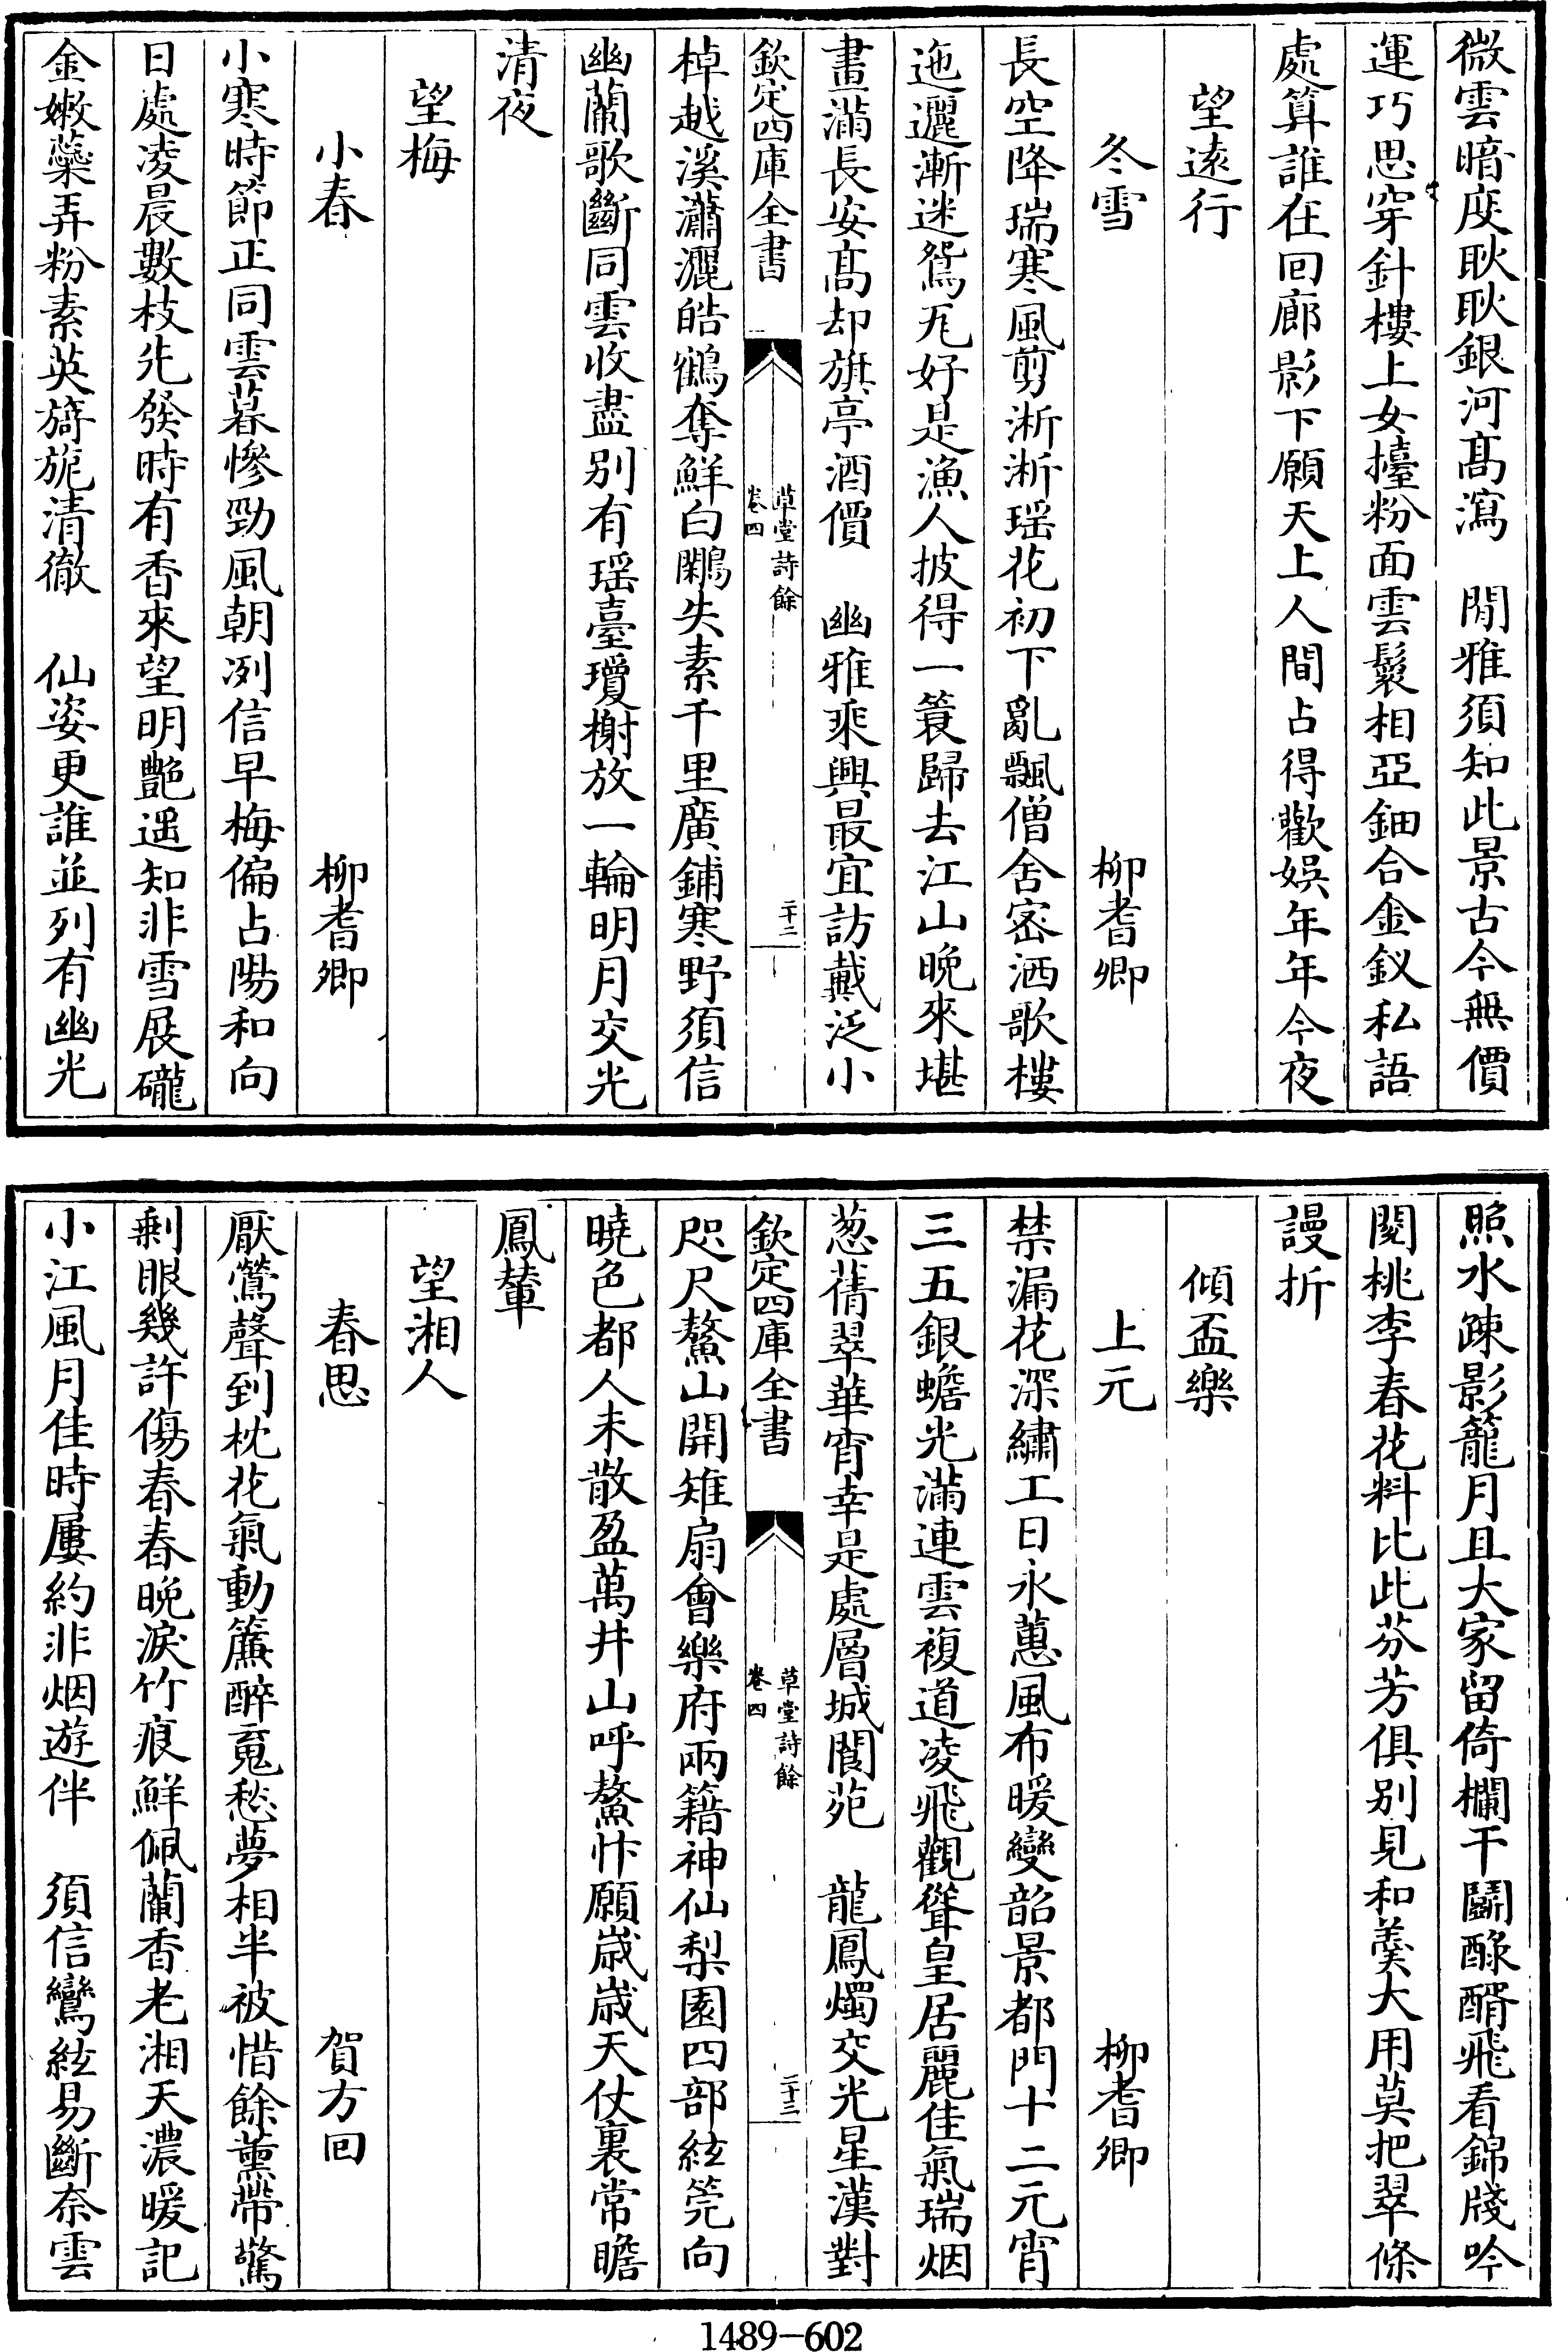 微雲暗度耿耿銀河髙瀉　閒雅須知此景古今無價
運巧思穿針樓上女擡粉面雲鬟相亞鈿合金釵私語
處算誰在回廊影下願天上人間占得歡娯年年今夜
望逺行
冬雪　柳耆卿
長空降瑞寒風剪淅淅瑶花初下亂飄僧舍宻洒歌樓
迤邐漸迷鴛瓦好是漁人披得一簑歸去江山晚來堪
畫滿長安髙却旗亭酒價　幽雅乘興最宜訪戴泛小
欽定四庫全書
草堂詩餘
卷四
二十二
棹越溪瀟灑皓鶴奪鮮白鷴失素千里廣鋪寒野須信
幽蘭歌斷同雲收盡别有瑶臺瓊榭放一輪明月交光
清夜
望梅
小春　柳耆卿
小寒時節正同雲暮惨勁風朝冽信早梅偏占陽和向
日處凌晨數枝先發時有香來望明艷遥知非雪展礲
金嫩蘂弄粉素英旖旎清徹　仙姿更誰並列有幽光
照水疎影籠月且大家留倚欄干鬬醁醑飛看錦牋吟
閱桃李春花料比此芬芳俱别見和羹大用莫把翠條
謾折
傾盃樂
上元　柳耆卿
禁漏花深繡工日永蕙風布暖變韶景都門十二元宵
三五銀蟾光滿連雲複道凌飛觀聳皇居麗佳氣瑞烟
葱蒨翠華宵幸是處層城閬苑　龍鳳燭交光星漢對
欽定四庫全書
草堂詩餘
卷四
二十三
咫尺鰲山開雉扇會樂府兩籍神仙梨園四部絃筦向
曉色都人未散盈萬井山呼鰲忭願嵗嵗天仗裏常瞻
鳳輦
望湘人
春思　賀方回
厭鶯聲到枕花氣動簾醉䰟愁夢相半被惜餘薰帶驚
剰眼幾許傷春春晚淚竹痕鮮佩蘭香老湘天濃暖記
小江風月佳時屢約非烟遊伴　須信鸞絃易斷奈雲
1489-602